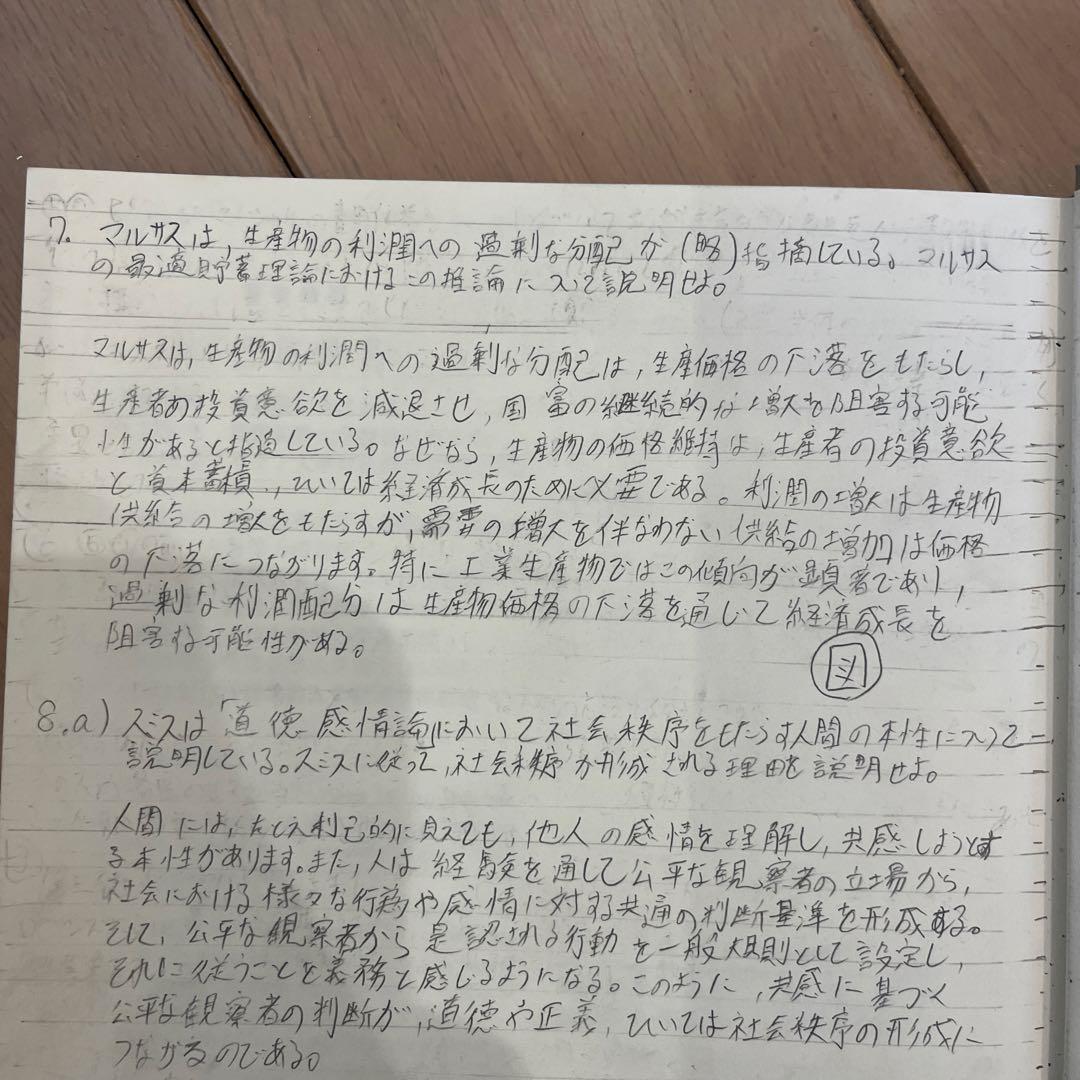 7. マルサスは,生産物の利潤への過剰な分配が(略)指摘している。マルサス
の最適貯蓄理論におけるこの推論について説明せよ。
マルサスは,生産物の利潤への過剰な分配は,生産価格の下落をもたらし,
生産者の投資意欲を減退させ,国富の継続的な増大を阻害する可能
性があると指摘している。なぜなら,生産物の価格維持は,生産者の投資意欲
と資本蓄積,ひいては経済成長のために必要である。利潤の増大は生産物
供給の増大をもたらすが,需要の増大を伴なわない供給の増加は価格
の下落につながります。特に工業生産物ではこの傾向が顕著であり,
過剰な利潤配分は生産物価格の下落を通じて経済成長を
阻害する可能性がある。
図
8.a) スミスは「道徳感情論」において社会秩序をもたらす人間の本性について
説明している。スミスに従って,社会秩序が形成される理由を説明せよ。
人間には,たとえ利己的に見えても,他人の感情を理解し,共感しようとす
る本性があります。また,人は経験を通して公平な観察者の立場から,
社会における様々な行為や感情に対する共通の判断基準を形成する。
そして,公平な観察者から是認される行動を一般規則として設定し,
それに従うことを義務と感じるようになる。このように,共感に基づく
公平な観察者の判断が,道徳や正義,ひいては社会秩序の形成に
つながるのである。